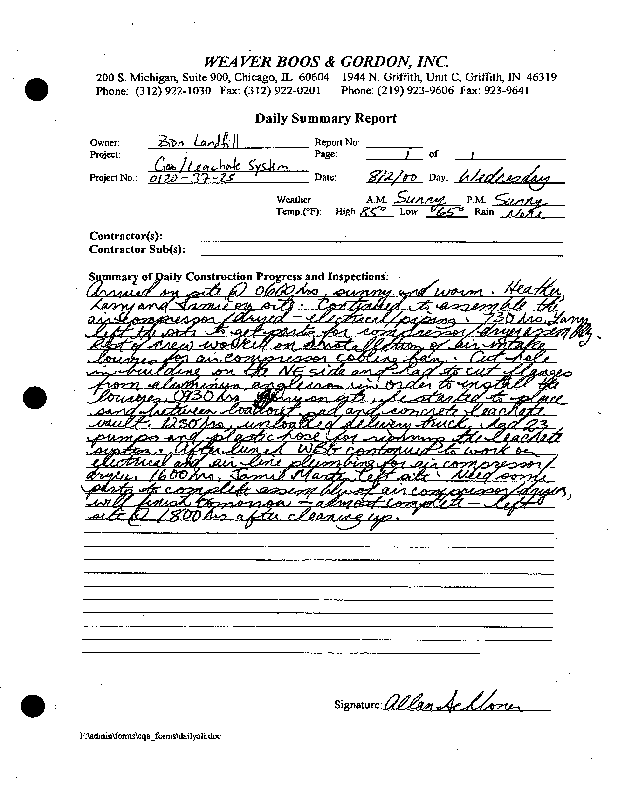 WEAVER BOOS & GORDON, INC.
200 S. Michigan, Suite 900, Chicago, IL 60604 1944 N. Griffith, Unit C, Griffith, IN 46319
Phone: (312) 922-1030 Fax: (312) 922-0201 Phone: (219) 923-9606 Fax: 923-9641
Daily Summary Report
Owner: Landfill Report No:
Project: Gas/Leachate System Page: 1 of 1
Project No.: 0120-37-25 Date: 8/2/00 Day: Wednesday
Weather A.M. Sunny P.M. Sunny
Temp.(°F): High 85° Low 65° Rain None
Contractor(s):
Contractor Sub(s):
Summary of Daily Construction Progress and Inspections:
Arrived on site @ 0600 hrs, sunny and warm. Heather,
Larry and Jamie on site. Continued to assemble the
air compressor/dryer - electrical/piping. 730 hrs, Larry
left the site to get parts for compressor/dryer assembly.
Rest of crew worked on installation of air intake
louvers for air compressor cooling fan. Cut hole
in building on the NE side and had to cut flanges
from aluminum angle iron in order to install the
louvers. 0930 hrs on site, he started to place
sand between loadout pad and concrete leachate
vault. 1230 hrs, unloaded delivery truck, had 23
pumps and plastic hose for the leachate
system. After lunch WBG continued to work on
electrical and air line plumbing for air compressor/
dryer. 1600 hrs, left site. Need some
parts to complete assembly of air compressor/dryer,
will finish tomorrow - almost complete - left
site @ 1800 hrs after cleaning up.
Signature: Allan
F:\admin\forms\cqa_forms\dailyali.doc